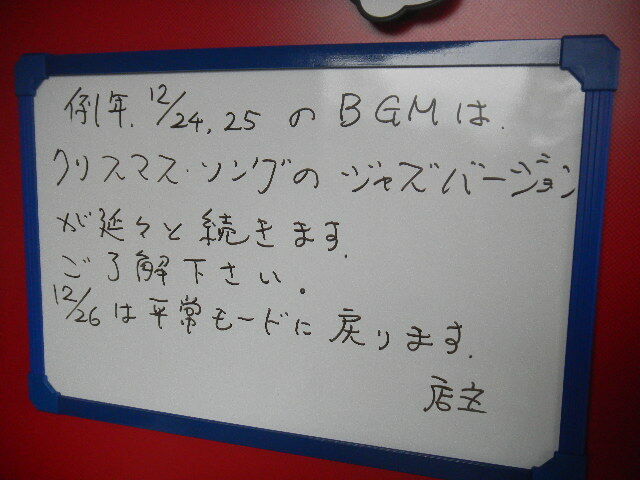 例年、12/24,25のBGMは、
クリスマス・ソングのジャズバージョン
が延々と続きます。
ご了解下さい。
12/26は平常モードに戻ります。
店主